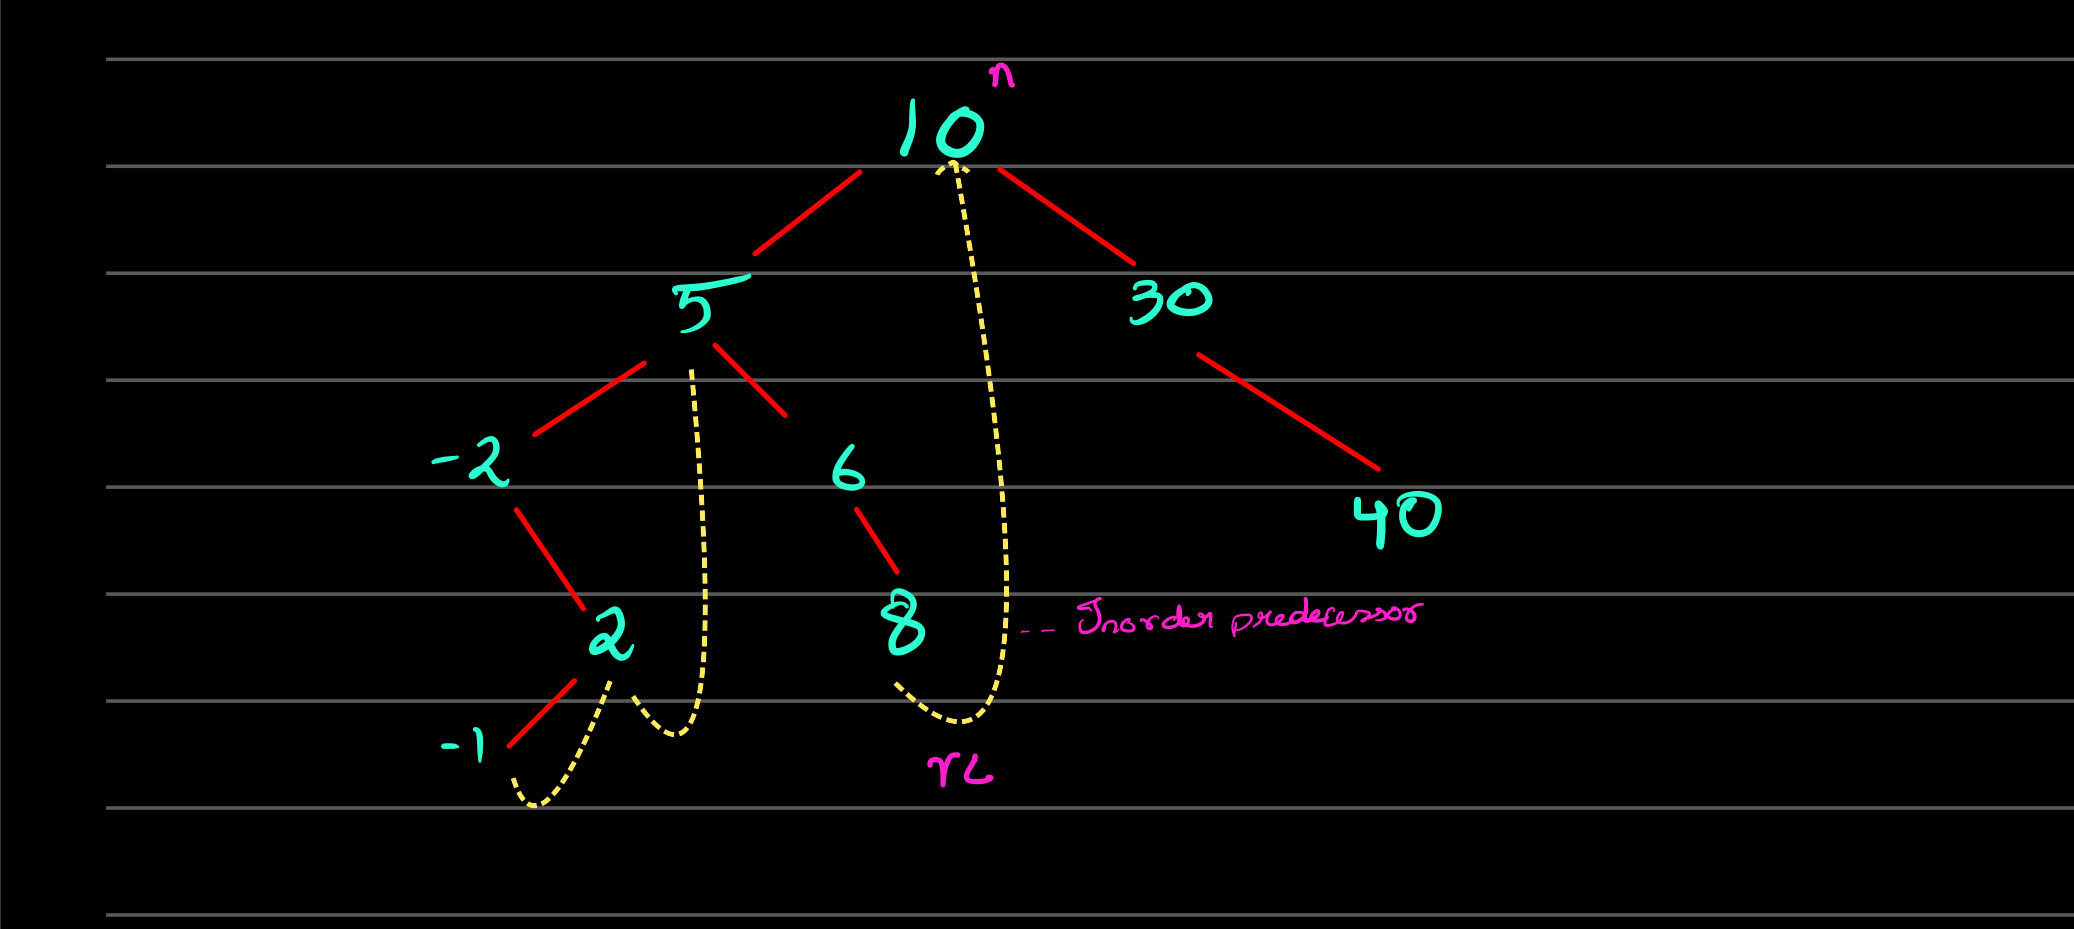 n
10
5 30
-2 6
40
2 8 -- Inorder predecessor
-1 rc